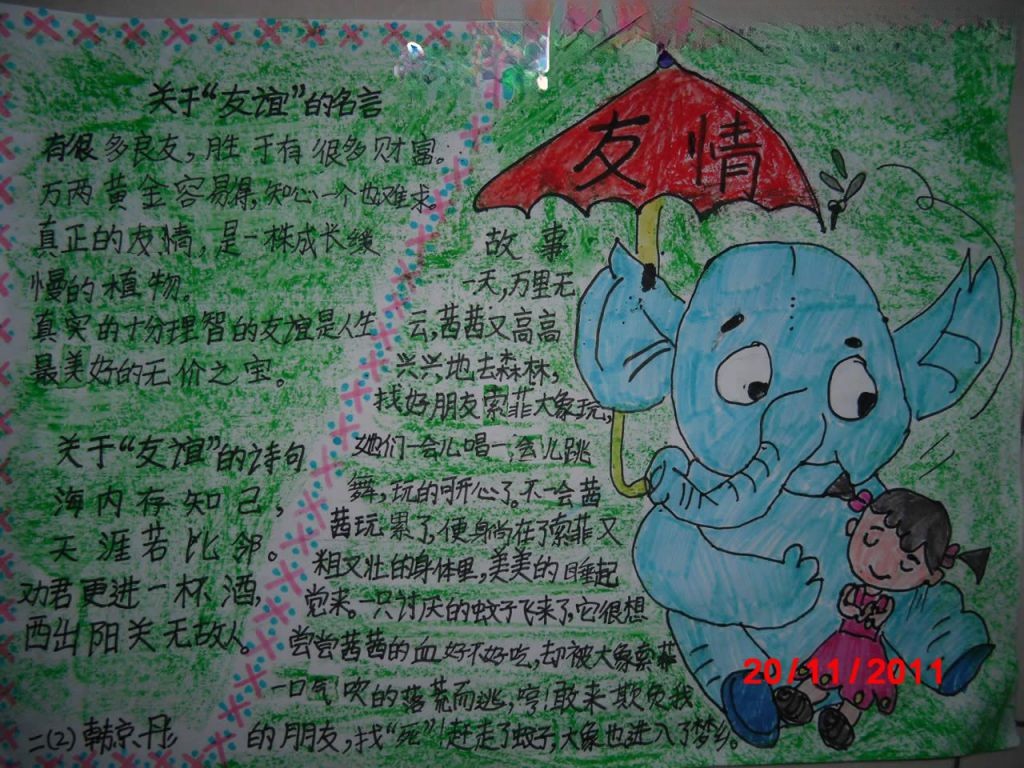 关于“友谊”的名言
有很多良友，胜于有很多财富。
万两黄金容易得，知心一个也难求。
真正的友情，是一株成长缓
慢的植物。
真实的十分理智的友谊是人生
最美好的无价之宝。
关于“友谊”的诗句
海内存知己，
天涯若比邻。
劝君更进一杯酒，
西出阳关无故人。
二(2) 韩京丹
友情
故事
一天，万里无
云，茜茜又高高
兴兴地去森林，
找好朋友索菲大象玩，
她们一会儿唱一会儿跳
舞，玩的可开心了。不一会茜
茜玩累了，便身尚在了索菲又
粗又壮的身体里，美美的睡起
觉来。一只讨厌的蚊子飞来了，它很想
尝尝茜茜的血好不好吃，却被大象索菲
一口气吹的落荒而逃，哼！敢来欺负我
的朋友，找“死”！赶走了蚊子，大象也进入了梦乡。
20/11/2011